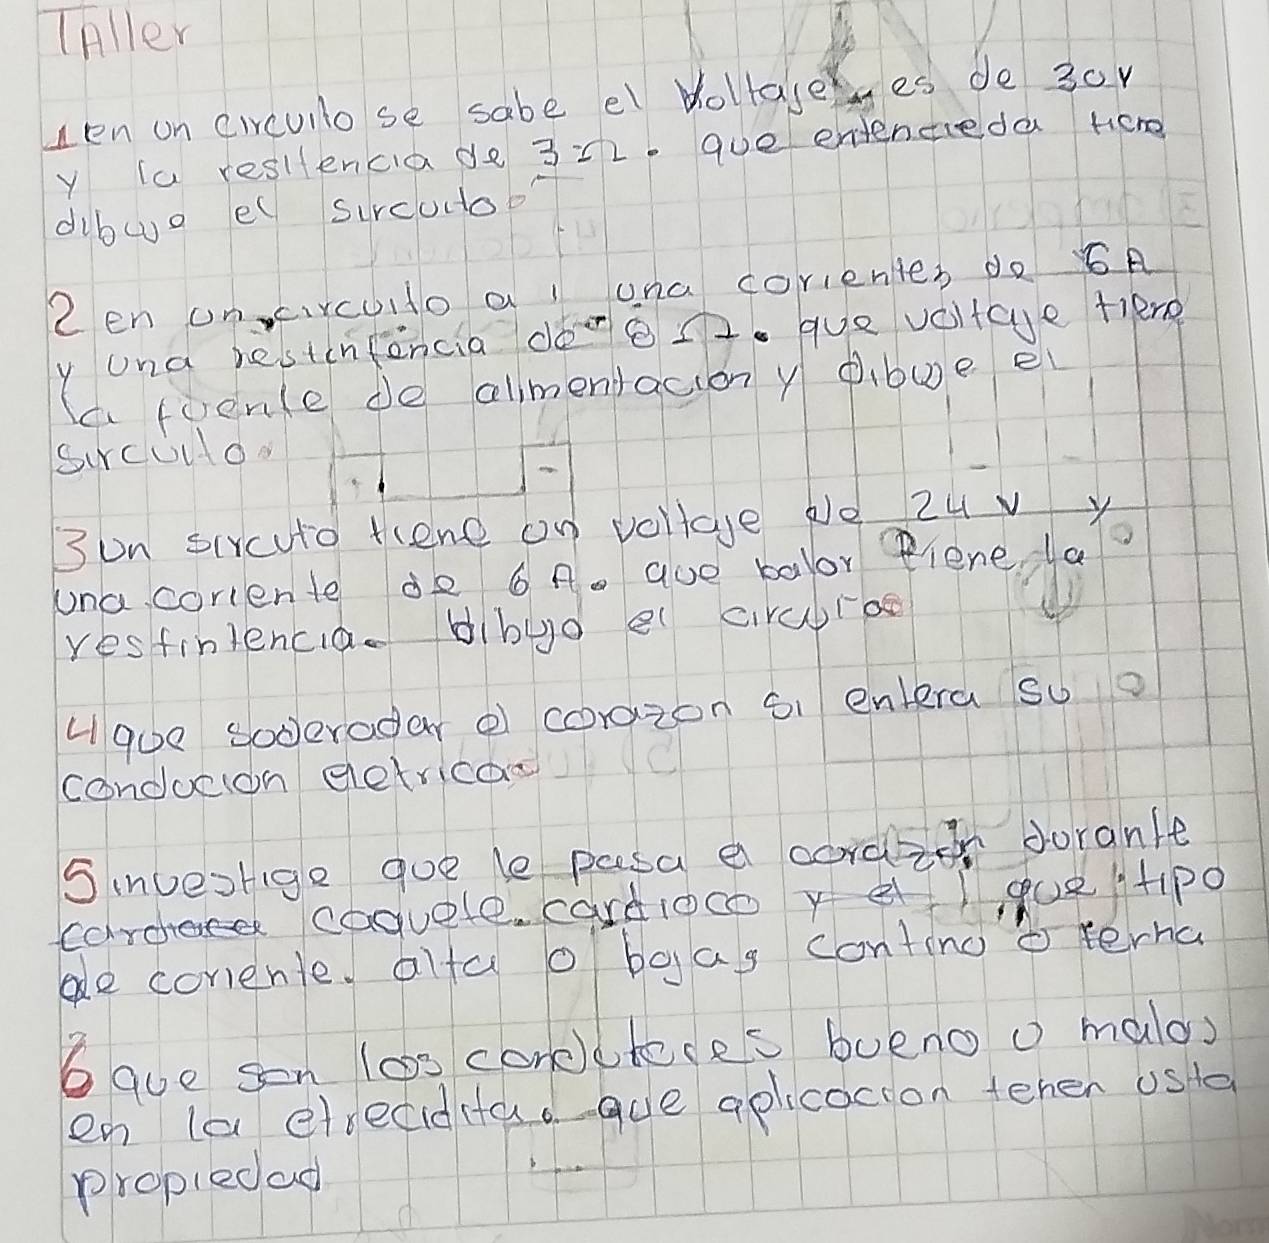 TAller
1 en un circuilo se sabe el Voltaje es de 30v
y la resiltencia de 3Ω. que entencieda tiene
dibuje el sircuito
2 en un circuito a i una corientes de 6A
y una restintencia de 8 Ω. que voltaje tiene
la fuente de alimentacion y dibuje el
sircuito
3 un sircuto tiene un voltaje de 24 v y
una coriente de 6 A. que balor tiene la
restintencia. dibujo el circuito
4 que soderadar el corazon si entera su
conducion eletrica
5 investige que le pasa el corazon durante
coquele. cardioco y el que tipo
de coriente. alta o bajas contino o terna
6 que son los condutores bueno o malos
en la etrecidita. que aplicacion tenen usta
propiedad